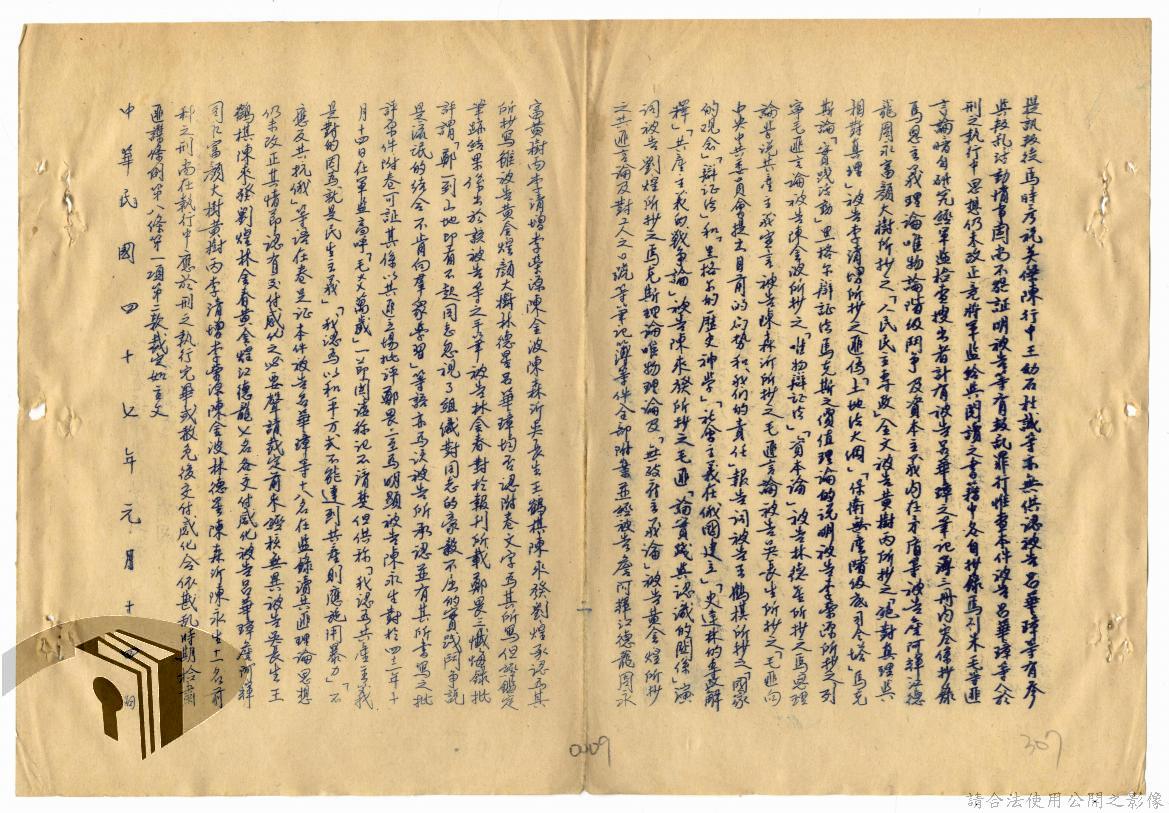 提訊叛徒馬時彥祝英傑陳行中王幼石杜誠等亦無供認被告呂華璋等有參
與叛亂活動情事固尚不能証明被告等有叛亂罪行惟查本件被告呂華璋等人於
刑之執行中思想仍未改正竟將軍監給與閱讀之書籍中各自抄錄馬列朱毛等匪
言論暗自研究經軍監檢查搜出者計有被告呂華璋之筆記簿三冊內容係抄錄
馬恩主義理論唯物論階級鬥爭及資本主義內在矛盾等被告詹阿輝江德
龍周永富顏大樹所抄之「人民民主專政」全文被告黃樹丙所抄之「絕對真理與
相對真理」被告李清增所抄之匪偽「土地法大綱」「保衛無產階級底司令塔」馬克
斯論「實踐活動」黑格尔辯証法馬克斯之價值理論的說明被告李雲源所抄之列
寧毛匪言論被告陳金波所抄之「唯物辯証法」「資本論」被告林德星所抄之馬恩理
論普說共產主義宣言被告陳森沂所抄之毛匪言論被告吳長生所抄之「毛匪向
中央中共委員會提出目前的局勢和我們的責任」報告詞被告王鶴棋所抄之「國家
的观念」「辯証法」和「黑格尔的歷史神學」「社會主義在俄國建立」「史達林的矛盾解
釋」「共產主義的戰爭論」被告陳來發所抄之毛匪「論實踐與認識的關係」演
詞被告劉煌所抄之馬克斯理論唯物理論及「無政府主義論」被告黃金煌所抄
之共匪言論及對工人之口號等筆記簿等件全部附案並經被告詹阿輝江德龍周永
富黃樹丙李清增李雲源陳金波陳森沂吳長生王鶴棋陳來發劉煌承認為其
所寫雖被告黃金煌顏大樹林德星呂華璋均否認附卷文字為其所寫但經鑑定
筆跡結果係出於該被告等之手筆被告林金春對於報刊所載鄭畏三懺悔錄批
評謂「鄭一到山地即看不起同志忽視了組織對同志的豪毅不屈的實踐鬥爭說
是流氓的結合不肯向羣眾學習」等語亦為該被告所承認並有其所書寫之批
評原件附卷可証其係以共匪立場批評鄭畏三至為明顯被告陳永生對於四三年十
月十四日在軍監高呼「毛父萬歲」一節固諉称記不清楚但供称「我認為共產主義
是對的因為就是民生主義」「我認為以和平方式不能達到共產則應施用暴力」「不
應反共抗俄」等語在卷是証本件被告呂華璋等十八名在監錄讀共匪理論思想
仍未改正其情節認有交付感化之必要聲請裁定前來經核無異被告吳長生王
鶴棋陳來發劉煌林金春黃金煌江德龍七名各交付感化被告呂華璋詹阿輝
周永富顏大樹黃樹丙李清增李雲源陳金波林德星陳森沂陳永生十一名前
科之刑尚在執行中應於刑之執行完畢或赦免後交付感化合依戡亂時期檢肅
匪諜條例第八條第一項第二款裁定如主文
中華民國四十七年元月十四日
307
0009
請合法使用公開之影像